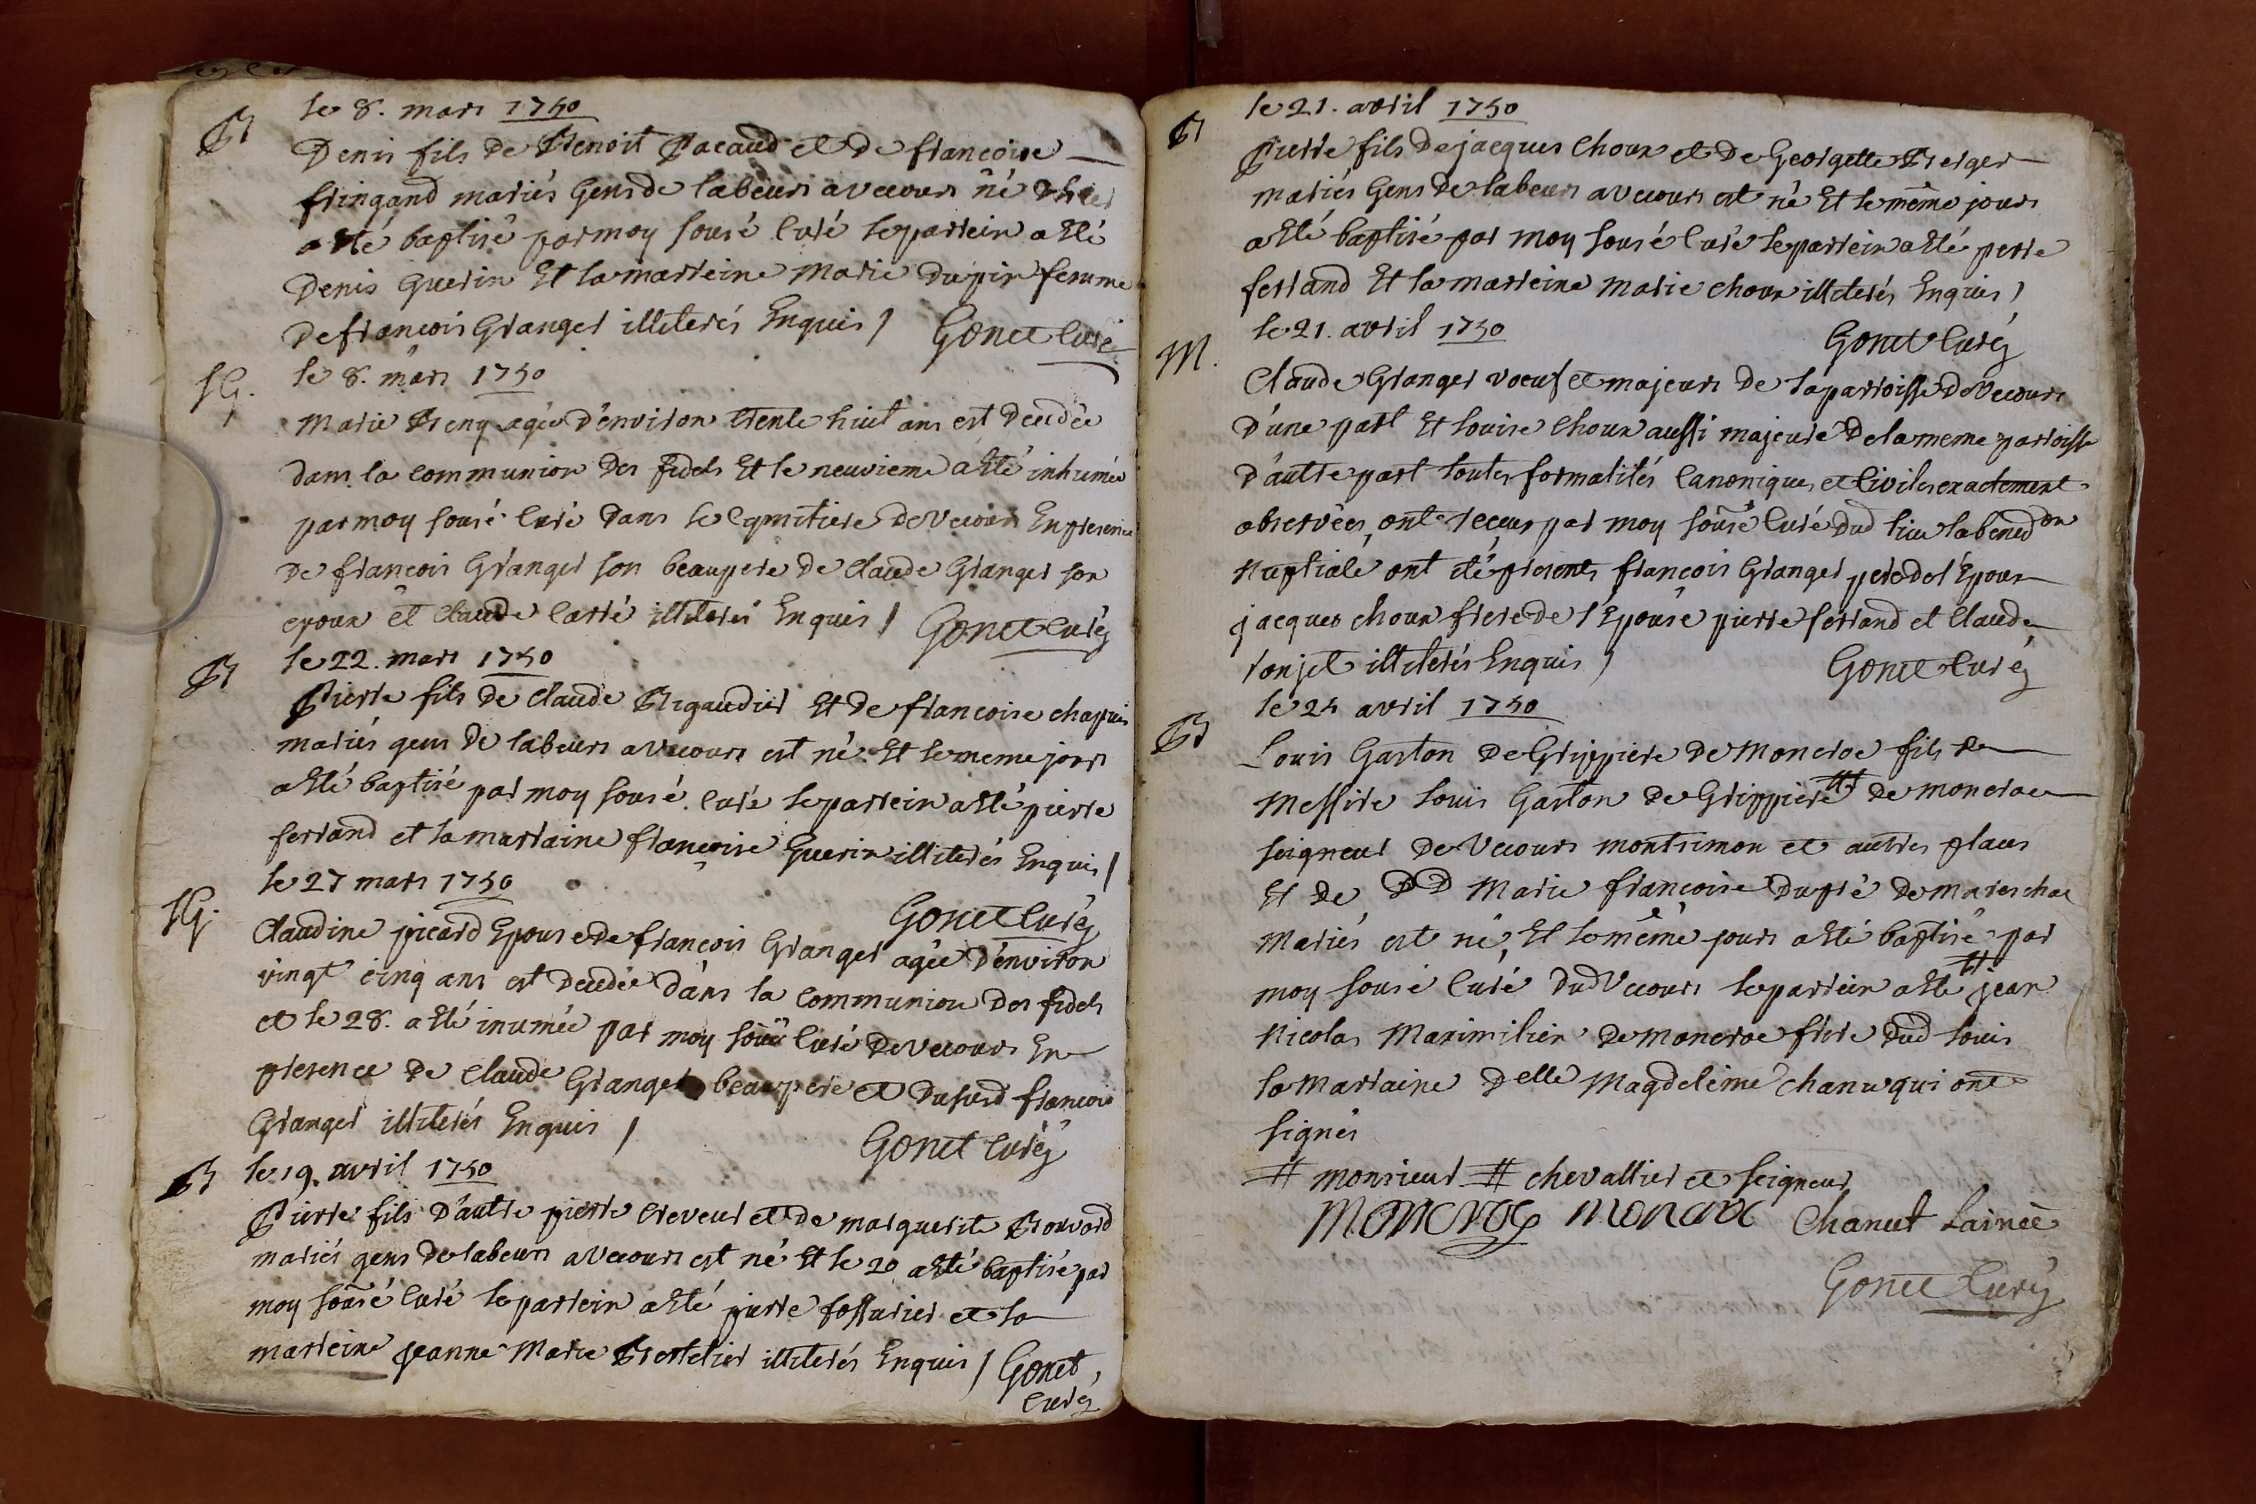 le 8. mars 1750
B
Denis fils de Benoit Pacaud et de francoise
fringand mariés Gens de labeurs a vecours né
a Eté baptisé par moy sousé Curé le parrein a Eté
Denis Guerin Et la marreine Marie Dupin femme
De francois Granger illiterés Enquis / Gonet Curé
SG.
le 8. mars 1750
Marie Benq agée d'environ trente huit ans est Decedée
dans la communion des fidels Et le neuvieme a Eté inhumée
par moy sousé Curé Dans le Cymitiere De Vecours En presence
De francois Granger son beaupere De Claude Granger son
epoux et Claude Carré illiterés Enquis / Gonet Curé
B
le 22. mars 1750
Pierre fils de Claude Brigaudier Et De francoise chapuis
mariés gens De labeurs a Vecours est né Et le meme jours
a Eté baptisé par moy sousé Curé le parrein a Eté pierre
ferrand et la marraine francoise Guerin illiterés Enquis /
Gonet Curé
SG.
le 27 mars 1750
Claudine picard Epouse de francois Granger agée D'environ
vingt cinq ans est Decedée dans la communion Des fidels
et le 28. a Eté inumée par moy sousé Curé De Vecours En
presence De Claude Granger beaupere et Dususd francois
Granger illiterés Enquis / Gonet Curé
B
le 19. avril 1750
Pierre fils D'autre pierre Creveur et de marguerite Bouvard
mariés gens De labeurs a Vecours est né Et le 20 a Eté baptisé par
moy sousé Curé le parrein a Eté pierre fossurier et la
marreine jeanne Marie Bertelier illiterés Enquis / Gonet
Curé
B
le 21. avril 1750
Pierre fils De jacques Choux et De Georgette Berger
mariés Gens De labeurs a Vecours est né Et le même jours
a Eté baptisé par moy sousé Curé le parrein a Eté perre
ferrand Et la marreine Marie choux illiterés Enquis /
Gonet Curé
M.
le 21. avril 1750
Claude Granger voeuf et majeurs De la parroisse De Vecours
D'une part Et Louise Choux aussi majeure De la meme parroisse
D'autre part toutes formalités Canoniques et Civiles exactement
observées, ont receus par moy sousé Curé Dud lieu la bened on
Nuptiale ont eté presents francois Granger pere de l'Epoux
jacques choux frere de l'Epouse pierre ferrand et Claude
ronjet illiterés Enquis / Gonet Curé
B
le 24 avril 1750
Louis Gaston De Grippiere De Moncroc fils de
Messire Louis Gaston de Grippiere # de moncroc
seigneur De Vecours montsimon et autres places
Et De DD Marie francoise Dupré De Mareschac
Mariés est né Et le même jours a Eté baptisé par
moy sousé Curé Dud Vecours le parrein a Eté # jean
Nicolas Maximilien de Moncroc frere Dud Louis
la Marraine Delle Magdeleine Chanu qui ont
signés
# monsieur # chevallier et seigneur
Moncroc Moncroc Chanut Lainée
Gonet Curé